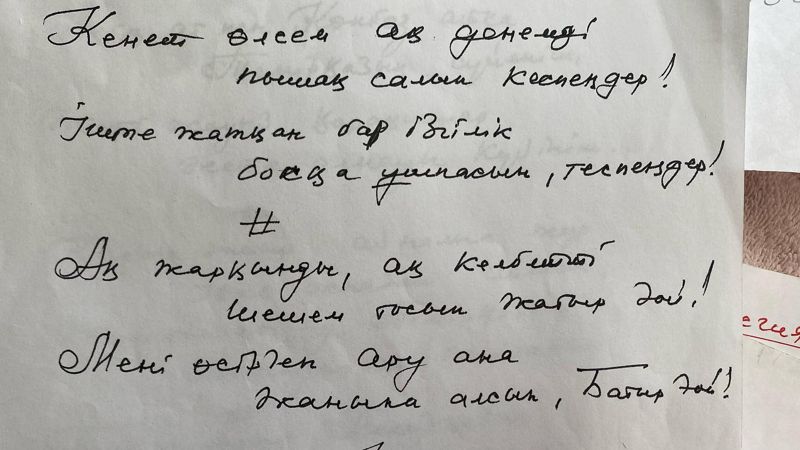 Кенет өлсем ақ дәнемді
пышақ салып кеспеңдер!
Іште жатқан бар ізгілік
босқа ұшпасын, теспеңдер!
#
Ақ жарқынды, ақ келбетті
шешем тосып жатыр ғой!
Мені өсірген ару ана
жаныма алсын, Батыр ғой!
егия